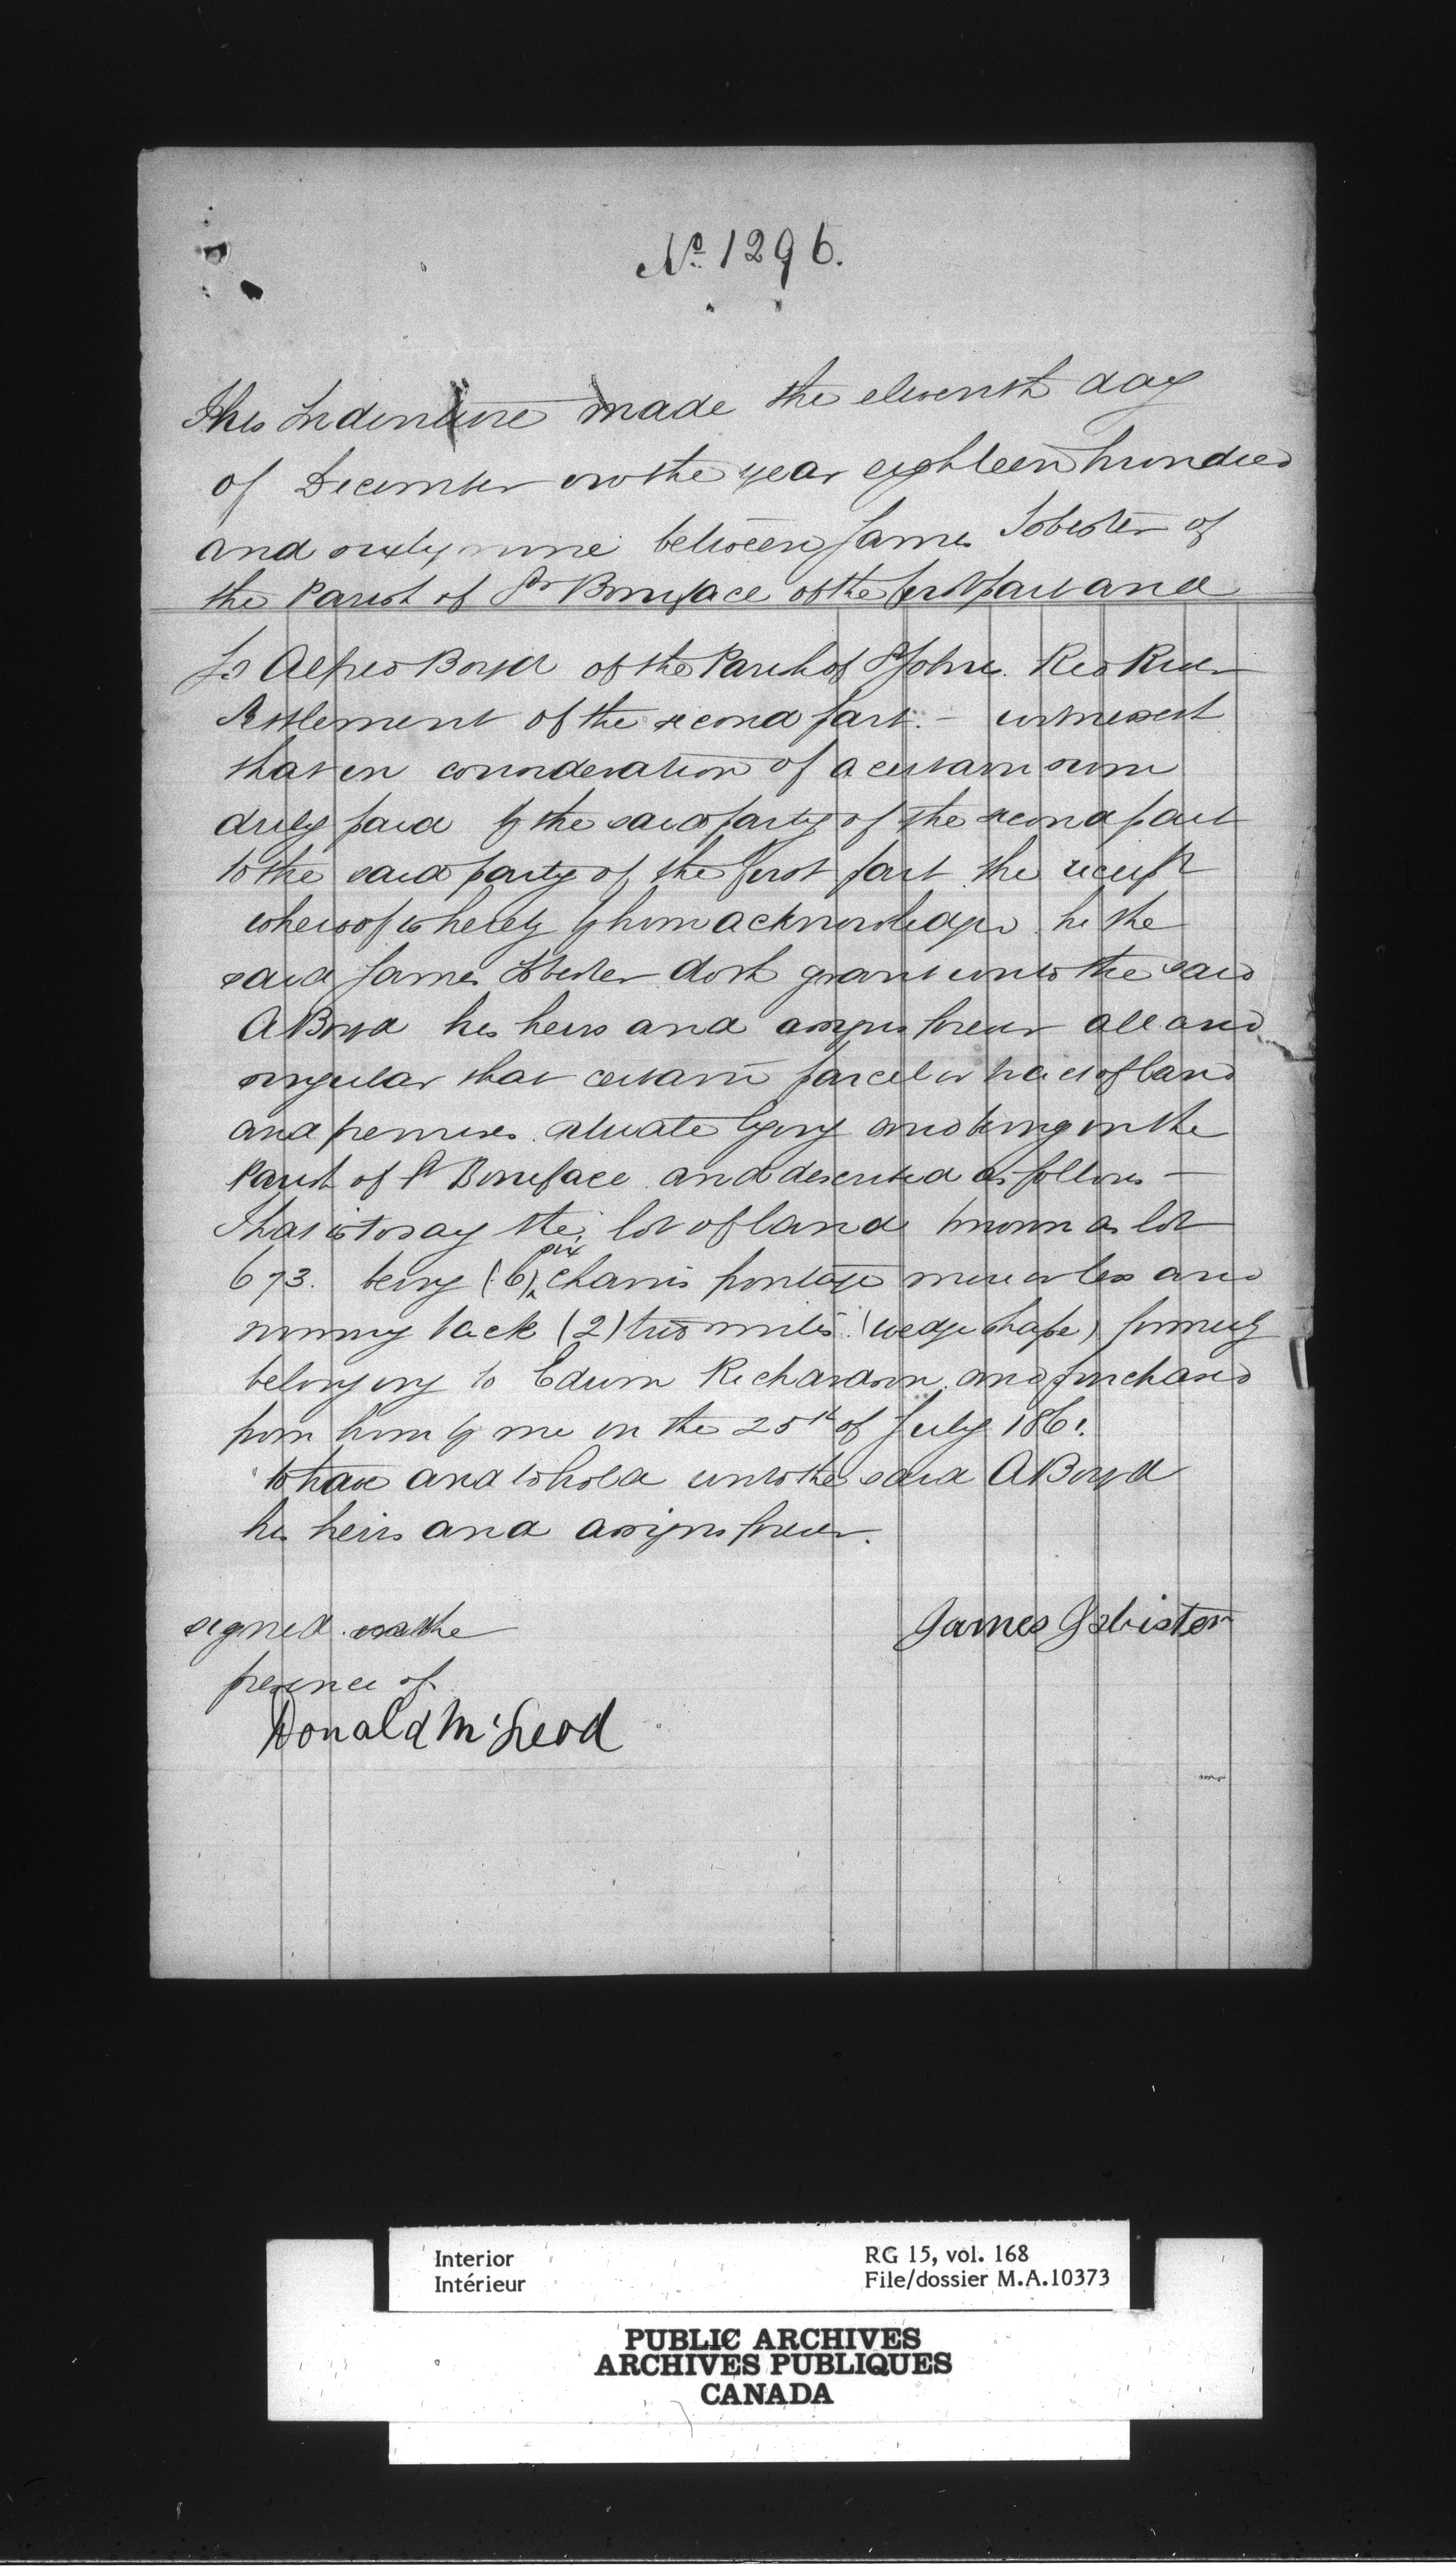 No. 1296.
This Indenture made the eleventh day
of December in the year eighteen hundred
and sixty nine between James Isbister of
the Parish of St Boniface of the first part and
Alfred Boyd of the Parish of St Johns. Red River
Settlement of the second part. — witnesseth
that in consideration of a certain sum
duly paid by the said party of the second part
to the said party of the first part the receipt
whereof is hereby by him acknowledged he the
said James Isbister doth grant unto the said
A Boyd his heirs and assigns forever all and
singular that certain parcel or tract of land
and premises situate lying and being in the
Parish of St Boniface and described as follows —
That is to say the lot of land known as lot
673. being (6) six chains frontage more or less and
running back (2) two miles (wedge shape) formerly
belonging to Edwin Richardson and purchased
from him by me on the 25th of July 1861.
to have and to hold unto the said A Boyd
his heirs and assigns forever.
signed in the
presence of
James Isbister
Donald McLeod
Interior
Intérieur
RG 15, vol. 168
File/dossier M.A.10373
PUBLIC ARCHIVES
ARCHIVES PUBLIQUES
CANADA